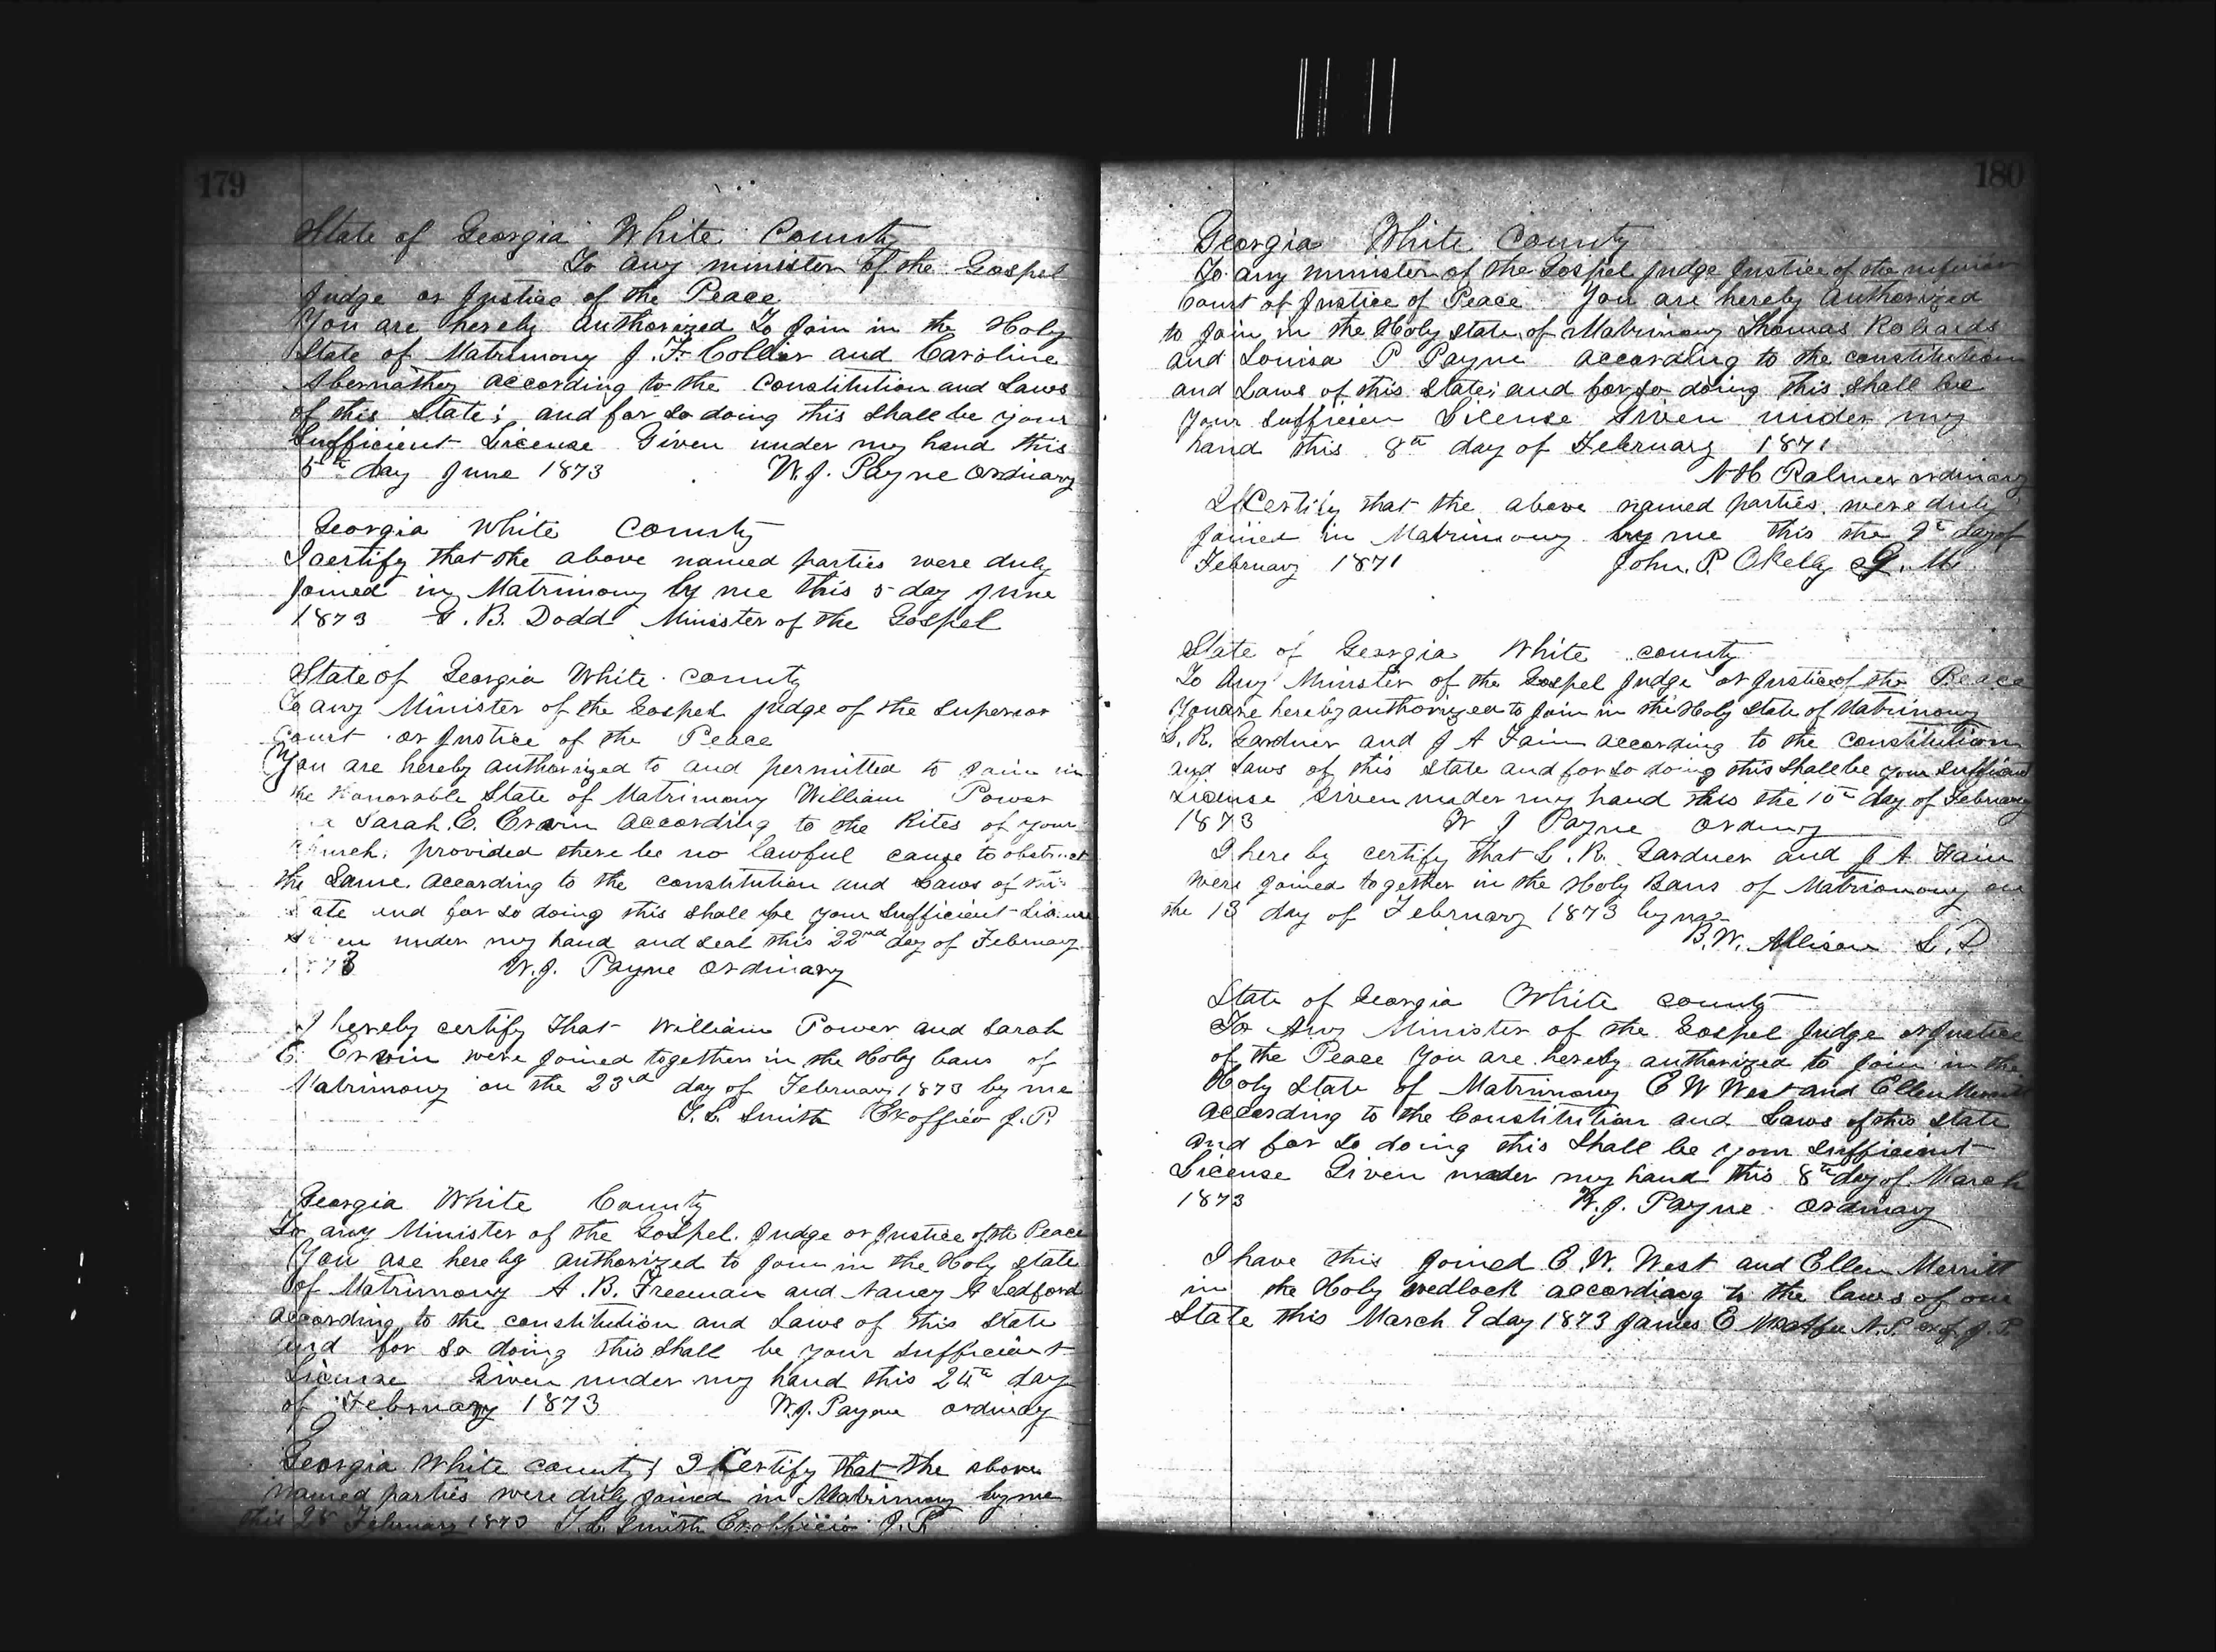 179
State of Georgia White County
To any minister of the Gospel
Judge or Justice of the Peace
You are hereby authorized To Join in the Holy
State of Matrimony J. F. Collier and Caroline
Abernathey according to the Constitution and Laws
of this State; and for so doing this shall be your
Sufficient License Given under my hand this
5th day June 1873 W. J. Payne Ordinary
Georgia White County
I certify that the above named parties were duly
Joined in Matrimony by me this 5 day June
1873 B. Dodd Minister of the Gospel
State of Georgia White County
To any Minister of the Gospel Judge of the Superior
Court or Justice of the Peace
You are hereby authorized to and permitted to Join in
the Honorable State of Matrimony William Power
Sarah. E. Erwin according to the Rites of your
Church; provided there be no lawful cause to obstruct
the Same. according to the constitution and Laws of
ate and for so doing this shall be your Sufficient License
en under my hand and seal this 22nd day of February
1873 W. J. Payne Ordinary
I hereby certify that William Power and Sarah
E. Erwin were Joined together in the Holy bans of
Matrimony on the 23rd day of February 1873 by me
Smith Exofficio J. P.
Georgia White County
To any Minister of the Gospel. Judge or Justice of the Peace
You are hereby authorized to Join in the Holy state
of Matrimony A. B. Freeman and Nancy A Ledford
according to the constitution and Laws of this State
and for so doing this shall be your Sufficient
License Given under my hand this 24th day
of February 1873 W. J. Payne ordinary
Georgia White County} I Certify that the above
named parties were duly Joined in Matrimony by me
this February 1873 Smith Exofficio J. P.
180
Georgia White County
To any minister of the Gospel Judge Justice of the inferior
Court of Justice of Peace You are hereby Authorized
to Join in the Holy State of Matrimony Thomas Robards
and Louisa P Payne according to the constitution
and Laws of this State; and for so doing this Shall be
your Sufficien License Given under my
hand this 8th day of February 1871
Palmer ordinary
I Certify that the above named parties were duly
Joined in Matrimony by me this the 9th day of
February 1871 John. P. OKelly M.
State of Georgia White county
To Any Minister of the Gospel Judge or Justice of the Peace
You are hereby authorized to Join in the Holy State of Matrimony
L. R. Gardner and J A Fain according to the constitution
and Laws of this State and for so doing this shall be your Sufficient
License Given under my hand this the 10th day of February
1873 W J Payne Ordinary
I here by certify that L. R. Gardner and J A. Fain
were Joined together in the Holy Bans of Matrimony on
the 13 day of February 1873 by me
B. W. Allison
State of Georgia White County
To Any Minister of the Gospel Judge or Justice
of the Peace You are hereby authorized to Join in the
Holy State of Matrimony E W West and Ellen Merritt
according to the Constitution and Laws of this State
and for so doing this Shall be your Sufficient
License Given under my hand this 8th day of March
1873 W. J. Payne Ordinary
I have this Joined E. W. West and Ellen Merritt
in the Holy wedlock according to the laws of our
State this March 9 day 1873 James E N. P. J. P.